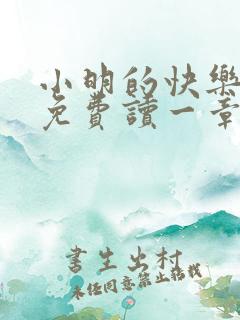 小明的快樂
免費讀一章
書生出村
未經同意禁止轉載